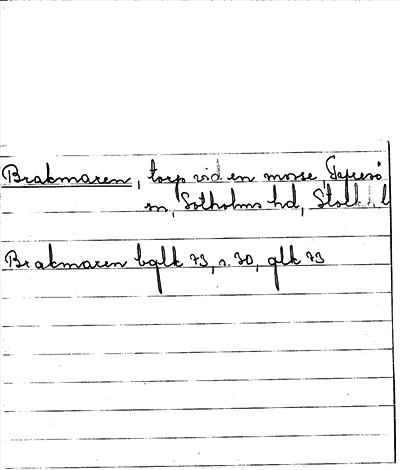 Brakmaren, torp vid en mosse, Tyresö
sn, Sotholms hd, Stolh. l
Brakmaren bglk 73, n. 30, glk 73